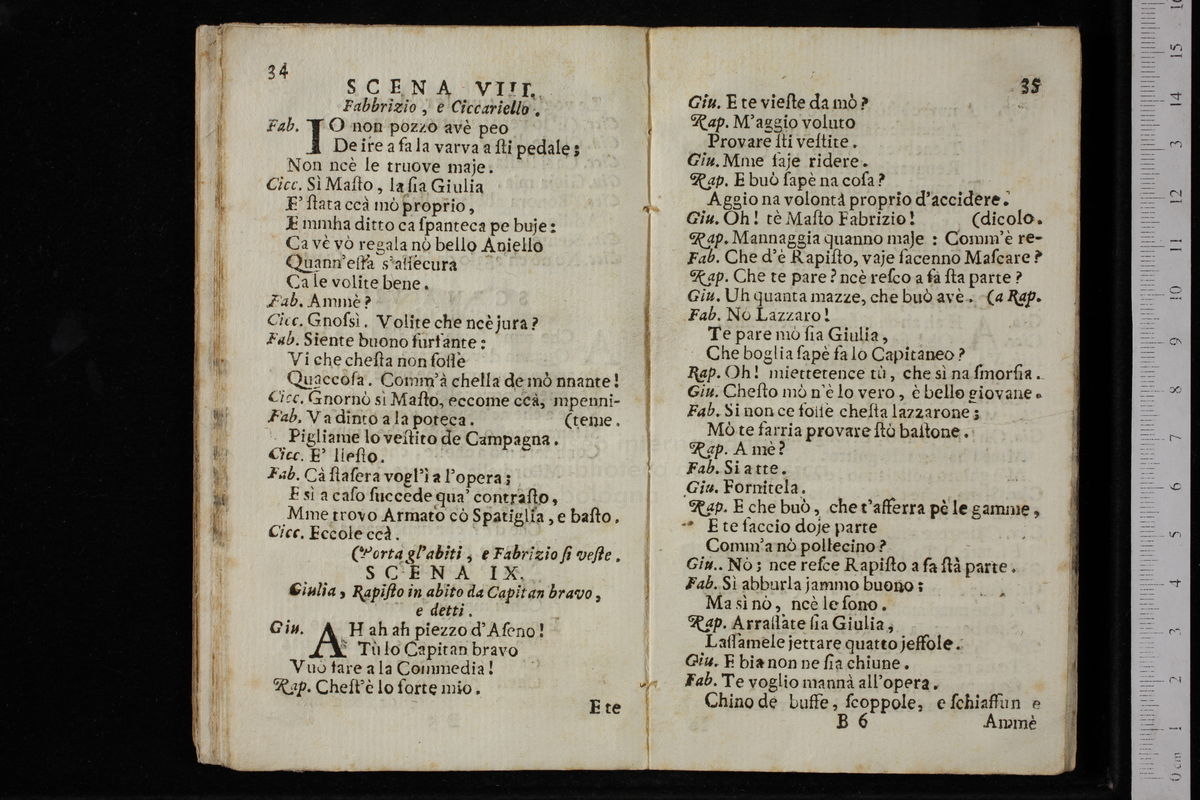 34
SCENA VIII.
Fabbrizio, e Ciccariello.
Fab. IO non pozzo avè peo
De ire a fa la varva a ſti pedale;
Non ncè le truove maje.
Cicc. Sì Maſto, la ſia Giulia
E' ſtata ccà mò proprio,
E mmha ditto ca ſpanteca pe buje:
Ca vè vò regala nò bello Aniello
Quann'eſſa s'aſſecura
Ca le volite bene.
Fab. Ammè?
Cicc. Gnoſsì. Volite che ncè jura?
Fab. Siente buono furfante:
Vi che cheſta non foſſe
Quaccoſa. Comm'à chella de mò nnante!
Cicc. Gnornò sì Maſto, eccome ccà, mpenni-
Fab. Va dinto a la poteca. (teme.
Pigliame lo veſtito de Campagna.
Cicc. E' lieſto.
Fab. Cà ſtaſera vogl'ì a l'opera;
E sì a caſo ſuccede qua' contraſto,
Mme trovo Armato cò Spatiglia, e baſto.
Cicc. Eccole ccà.
(Porta gl'abiti, e Fabrizio ſi veſte.
SCENA IX.
Giulia, Rapiſto in abito da Capitan bravo,
e detti.
Giu. AH ah ah piezzo d'Aſeno!
Tù lo Capitan bravo
Vuò fare a la Commedia!
Rap. Cheſt'è lo forte mio.
E te
35
Giu. E te vieſte da mò?
Rap. M'aggio voluto
Provare ſti veſtite.
Giu. Mme faje ridere.
Rap. E buò ſapè na coſa?
Aggio na volontà proprio d'accidere.
Giu. Oh! tè Maſto Fabrizio! (dicolo.
Rap. Mannaggia quanno maje: Comm'è re-
Fab. Che d'è Rapiſto, vaje facenno Maſcare?
Rap. Che te pare? ncè reſco a fà ſta parte?
Giu. Uh quanta mazze, che buò avè. (a Rap.
Fab. Nò Lazzaro!
Te pare mò ſia Giulia,
Che boglia ſapè fa lo Capitaneo?
Rap. Oh! miettetence tù, che sì na ſmorfia.
Giu. Cheſto mò n'è lo vero, è bello giovane.
Fab. Si non ce foſſe cheſta lazzarone;
Mò te farria provare ſtò baſtone.
Rap. A mè?
Fab. Si a tte.
Giu. Fornitela.
Rap. E che buò, che t'afferra pè le gamme,
E te faccio doje parte
Comm'a nò pollecino?
Giu.. Nò; nce reſce Rapiſto a fa ſtà parte.
Fab. Sì abburla jammo buono;
Ma sì nò, ncè le ſono.
Rap. Arraſſate ſia Giulia,
Laſſamele jettare quatto jeffole.
Giu. E bia non ne ſia chiune.
Fab. Te voglio mannà all'opera.
Chino de buffe, ſcoppole, e ſchiaffun e
B 6
Ammè